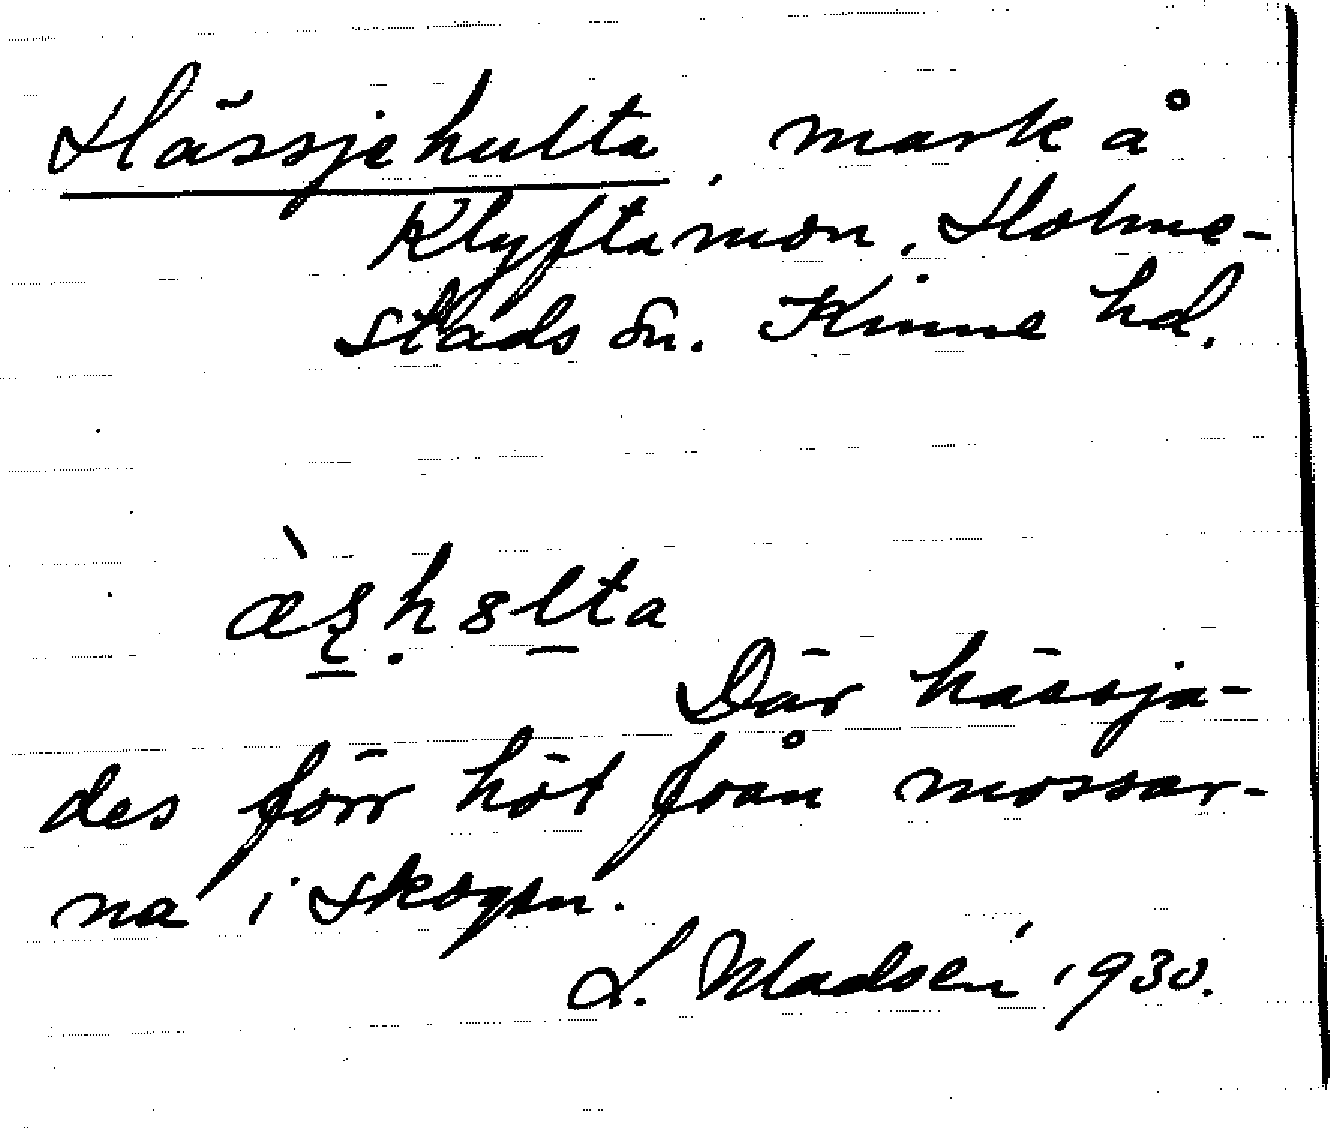 Hässjehulta, mark å
Klyftamon, Holme-
stads sn. Kinne hd.
Där hässja-
des förr höt från mossar-
na i skogen.
L. Madsén 1930.